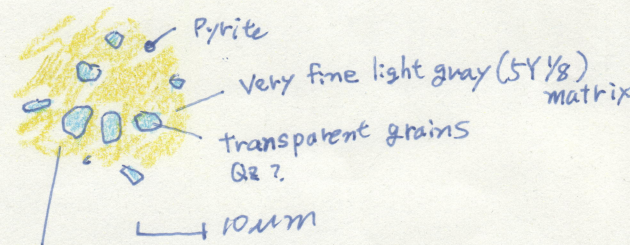 Pyrite
Very fine light gray (5Y 1/8)
matrix
transparent grains
Qz?
10 μm